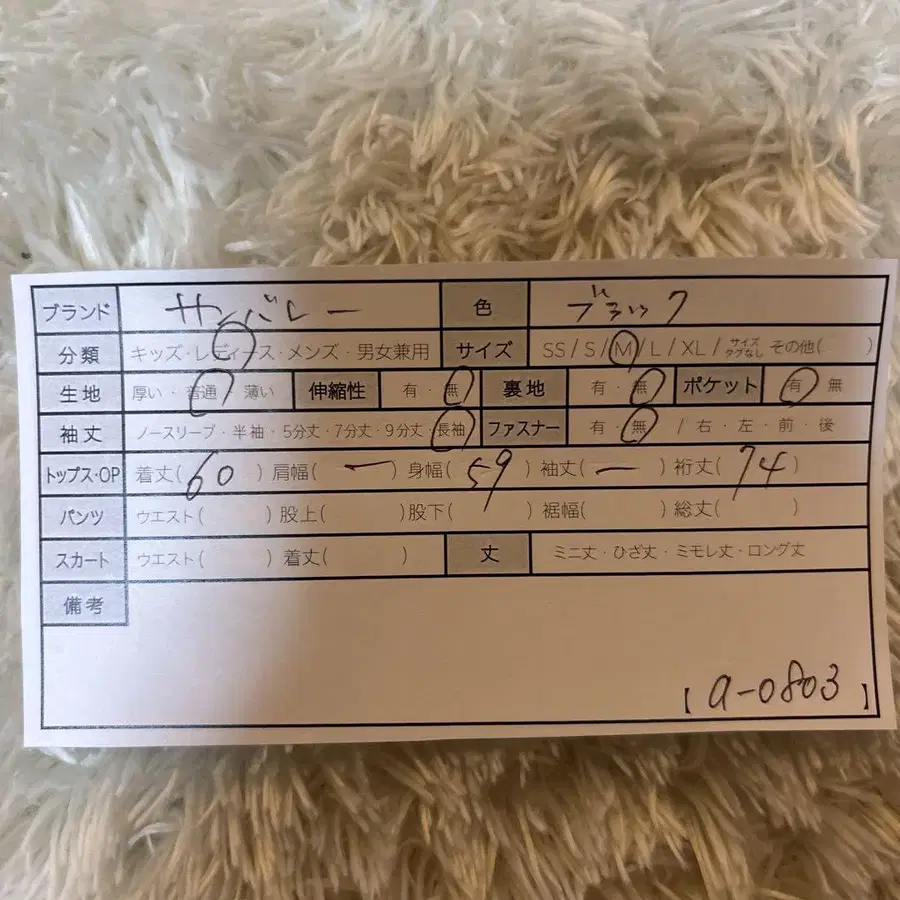 ブランド サンバレー 色 ブラック
分類 キッズ・レディース・メンズ・男女兼用 サイズ SS / S / M / L / XL / サイズタグなし その他( )
生地 厚い・普通・薄い 伸縮性 有・無 裏地 有・無 ポケット 有・無
袖丈 ノースリーブ・半袖・5分丈・7分丈・9分丈・長袖 ファスナー 有・無 / 右・左・前・後
トップス・OP 着丈( 60 ) 肩幅( ー ) 身幅( 59 ) 袖丈( ー ) 裄丈( 74 )
パンツ ウエスト( ) 股上( ) 股下( ) 裾幅( ) 総丈( )
スカート ウエスト( ) 着丈( ) 丈 ミニ丈・ひざ丈・ミモレ丈・ロング丈
備考
【 a-0803 】